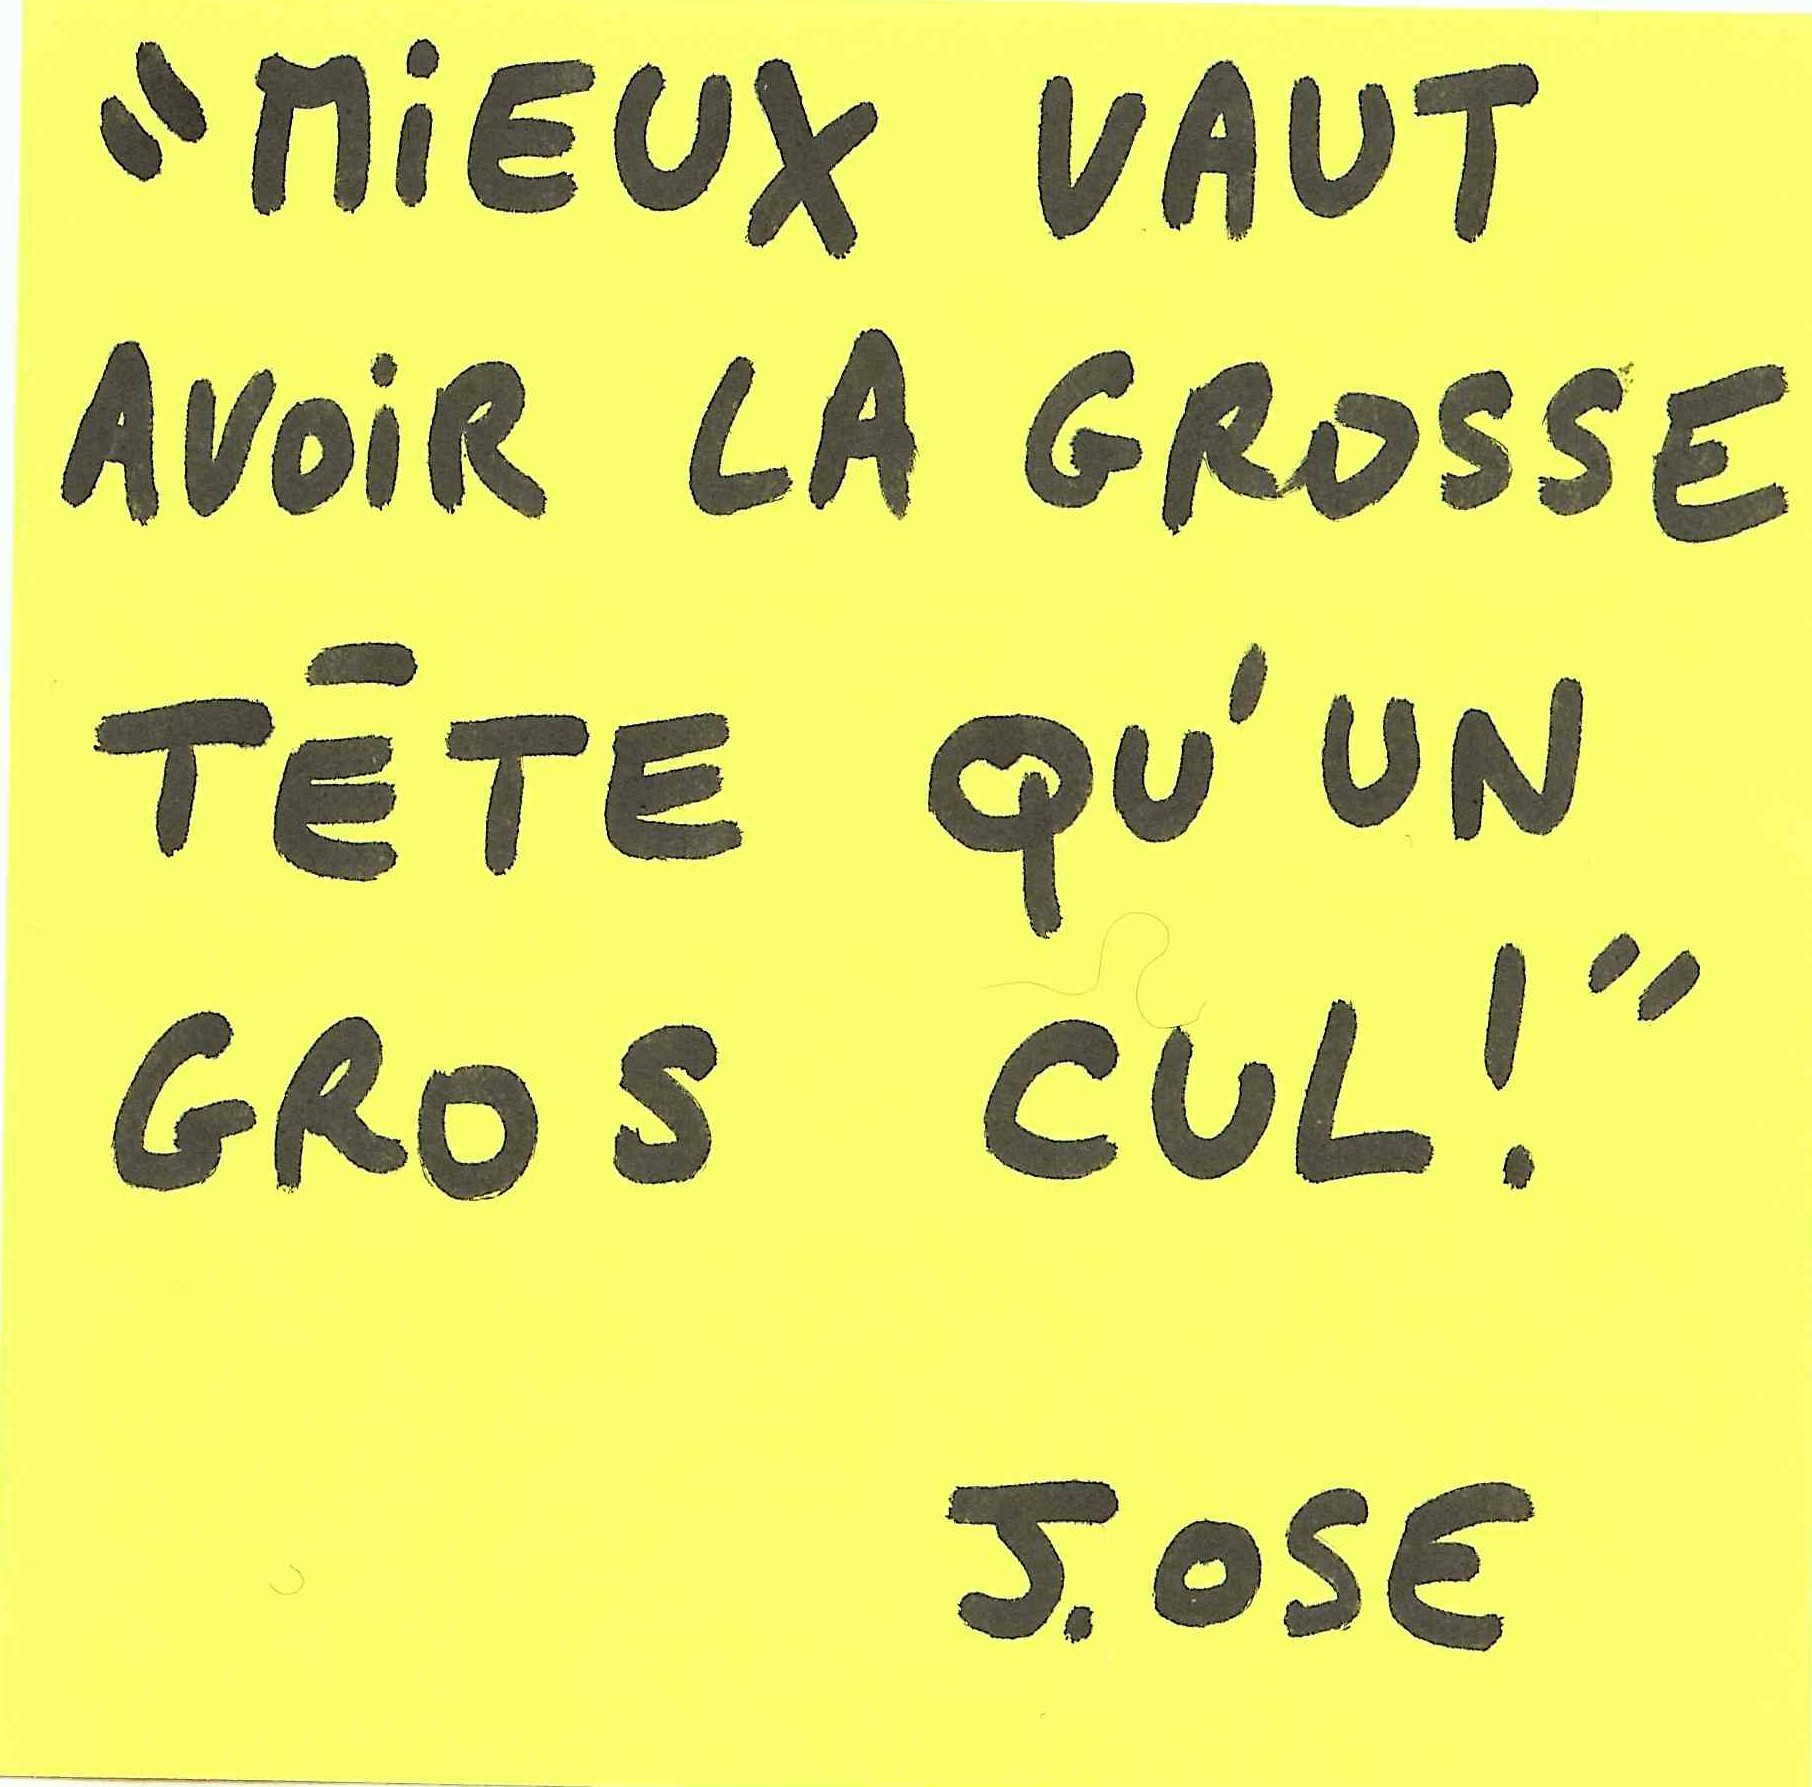 "MiEUX VAUT
AVOiR LA GROSSE
TÊTE QU'UN
GROS CUL!"
J.OSE